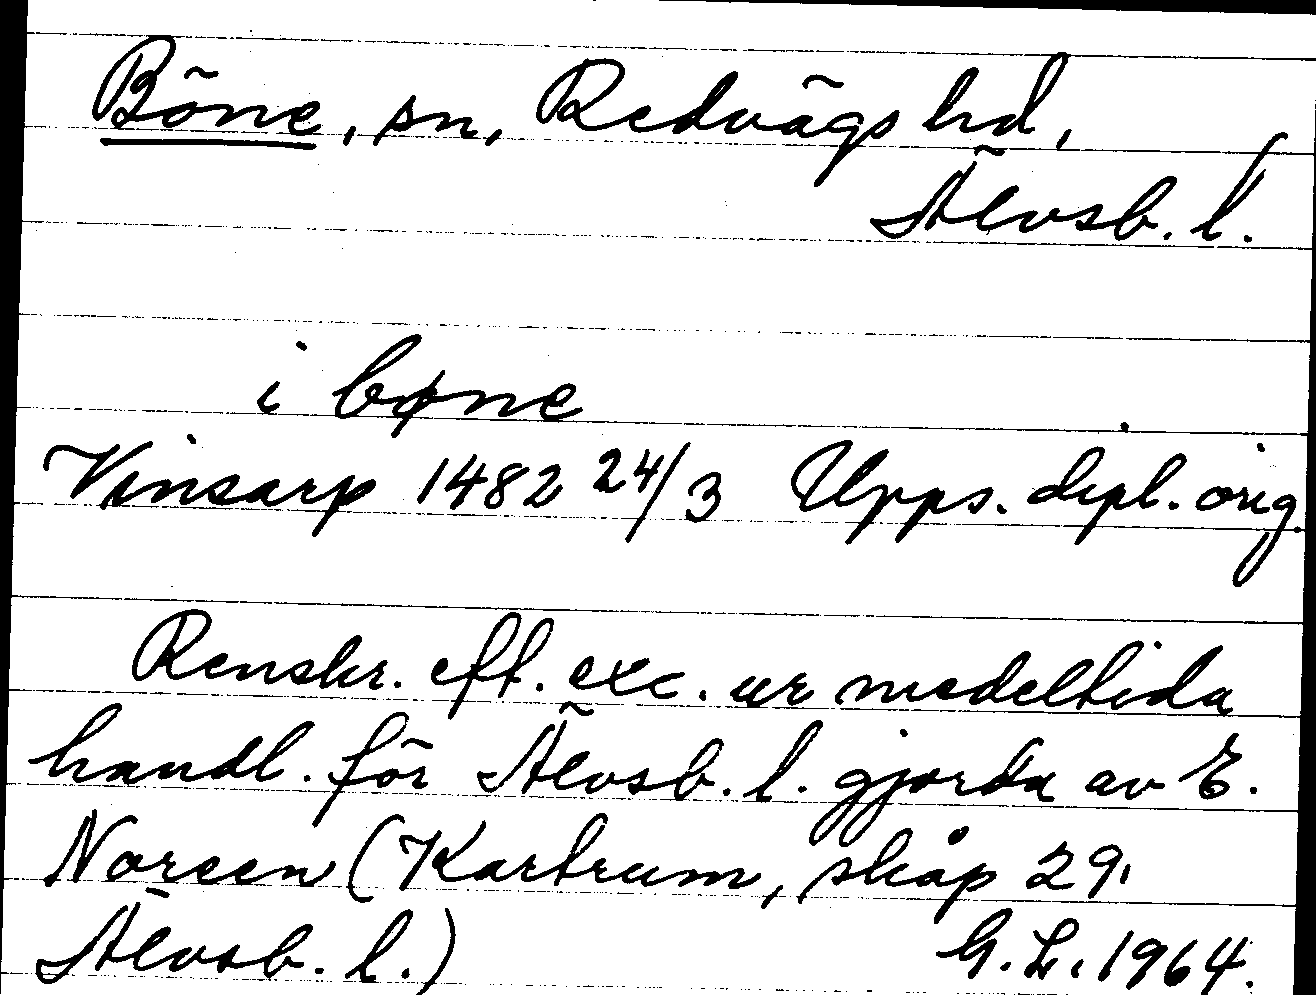 Böne, sn, Redvägs hd,
Älvsb. l.
i bøne
Vinsarp 1482 24/3 Upps. dipl. orig.
Renskr. eft. exc. ur medeltida
handl. för Älvsb. l. gjorda av E.
Noreen (Kartrum, skåp 29,
Älvsb. l.) G. L. 1964.